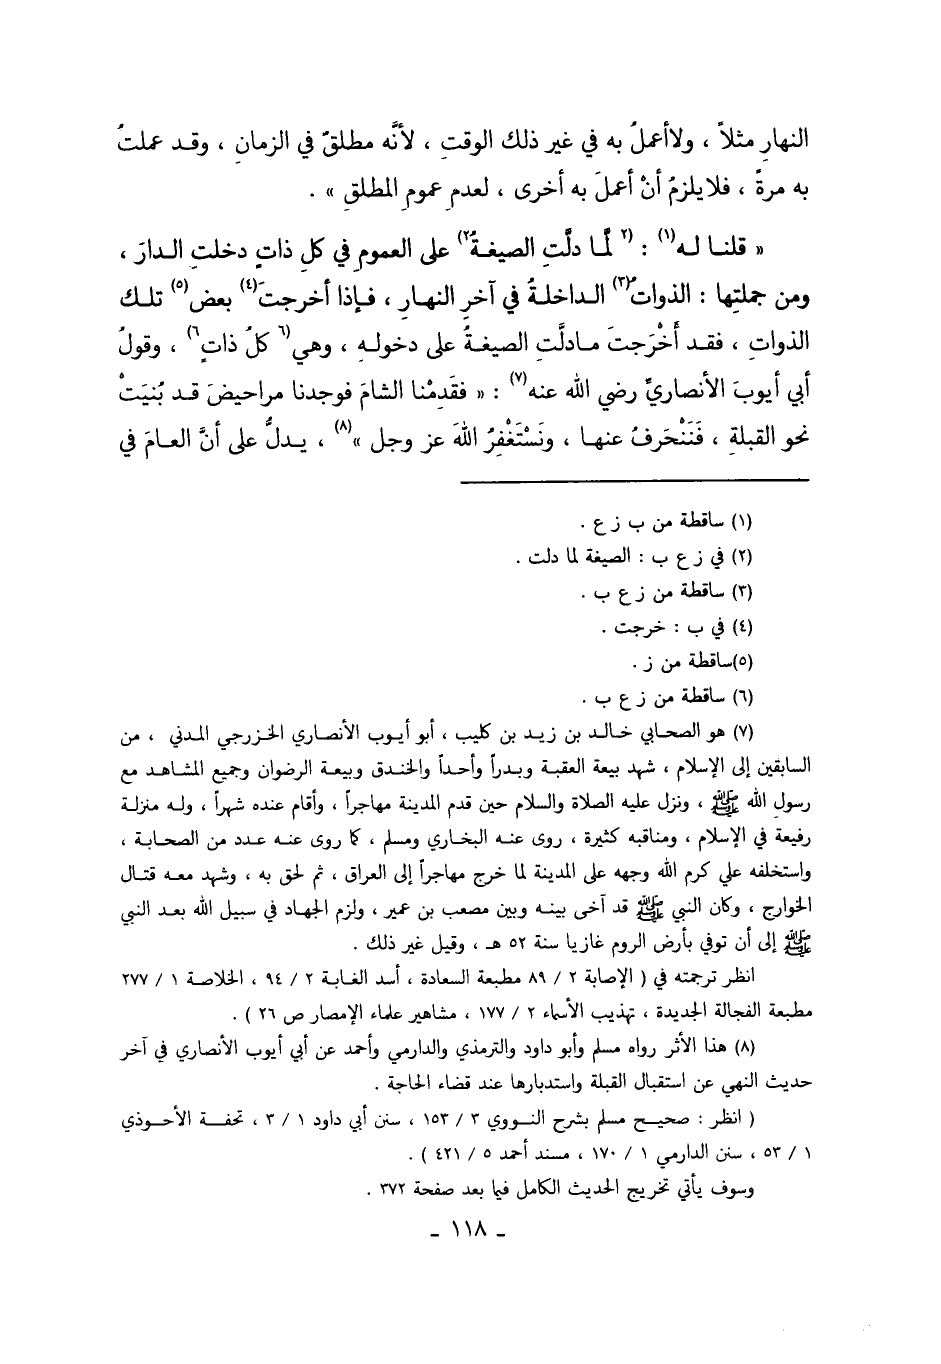 النهارِ مثلاً ، ولاأعملُ به في غير ذلك الوقتِ ، لأنَّه مطلقٌ في الزمانِ ، وقد عملتُ
به مرةً ، فلايلزمُ أنْ أعملَ به أخرى ، لعدمِ عمومِ المطلقِ » .
« قلنا له(١) : (٢ لمَّا دلَّتِ الصيغةُ٢) على العمومِ في كلِ ذاتٍ دخلتِ الدارَ ،
ومن جملتِها : الذواتُ(٣) الداخلةُ في آخرِ النهارِ ، فإذا أخرجتَ(٤) بعض(٥) تلك
الذواتِ ، فقد أَخْرَجتَ مادلَّتِ الصيغةُ على دخولهِ ، وهي(٦ كلُ ذاتٍ٦) ، وقولُ
أبي أيوبَ الأنصاريِّ رضي الله عنه(٧) : « فقَدِمْنا الشامَ فوجدنا مراحيضَ قد بُنيَتْ
نحوَ القبلةِ ، فَنَنْحَرفُ عنها ، ونَسْتَغْفِرُ اللهَ عز وجل »(٨) ، يدلُّ على أنَّ العامَ في
(١) ساقطة من ب ز ع .
(٢) في ز ع ب : الصيغة لما دلت .
(٣) ساقطة من ز ع ب .
(٤) في ب : خرجت .
(٥)ساقطة من ز .
(٦) ساقطة من ز ع ب .
(٧) هو الصحابي خالد بن زيد بن كليب ، أبو أيوب الأنصاري الخزرجي المدني ، من
السابقين إلى الإسلام ، شهد بيعة العقبة وبدراً وأحداً والخندق وبيعة الرضوان وجميع المشاهد مع
رسول الله ﷺ ، ونزل عليه الصلاة والسلام حين قدم المدينة مهاجراً ، وأقام عنده شهراً ، وله منزلة
رفيعة في الإسلام ، ومناقبه كثيرة ، روى عنه البخاري ومسلم ، كما روى عنه عدد من الصحابة ،
واستخلفه علي كرم الله وجهه على المدينة لما خرج مهاجراً إلى العراق ، ثم لحق به ، وشهد معه قتال
الخوارج ، وكان النبي ﷺ قد آخى بينه وبين مصعب بن عمير ، ولزم الجهاد في سبيل الله بعد النبي
ﷺ إلى أن توفي بأرض الروم غازيا سنة ٥٢ هـ ، وقيل غير ذلك .
انظر ترجمته في ( الإصابة ٢ / ٨٩ مطبعة السعادة ، أسد الغابة ٢ / ٩٤ ، الخلاصة ١ / ٢٧٧
مطبعة الفجالة الجديدة ، تهذيب الأسماء ٢ / ١٧٧ ، مشاهير علماء الإمصار ص ٢٦ ) .
(٨) هذا الأثر رواه مسلم وأبو داود والترمذي والدارمي وأحمد عن أبي أيوب الأنصاري في آخر
حديث النهي عن استقبال القبلة واستدبارها عند قضاء الحاجة .
( انظر : صحيح مسلم بشرح النووي ٣ / ١٥٣ ، سنن أبي داود ١ / ٣ ، تحفة الأحوذي
١ / ٥٣ ، سنن الدارمي ١ / ١٧٠ ، مسند أحمد ٥ / ٤٢١ ) .
وسوف يأتي تخريج الحديث الكامل فيما بعد صفحة ٣٧٢ .
ـ ١١٨ ـ